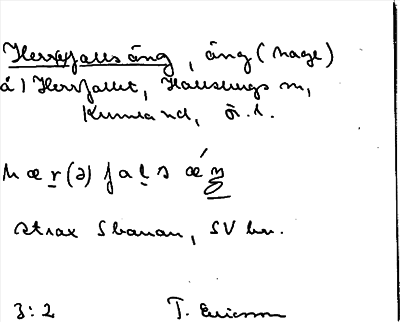 Herrfallsäng, äng (hage)
å) Herrfallet, Hallsbergs sn,
Kumla hd, Ö. l.
hær(ə) fals æ´ŋ
strax S banan, SV hn.
3:2 T. Ericsson